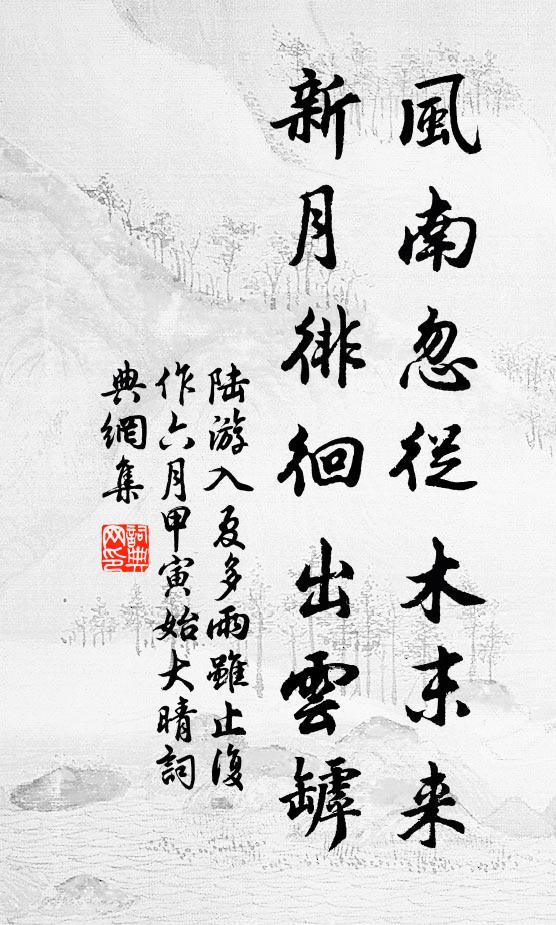 風南忽從木末来
新月徘徊出雲罅
陆游入夏多雨雖止復
作六月甲寅始大晴詞
典網集
詞典
网印